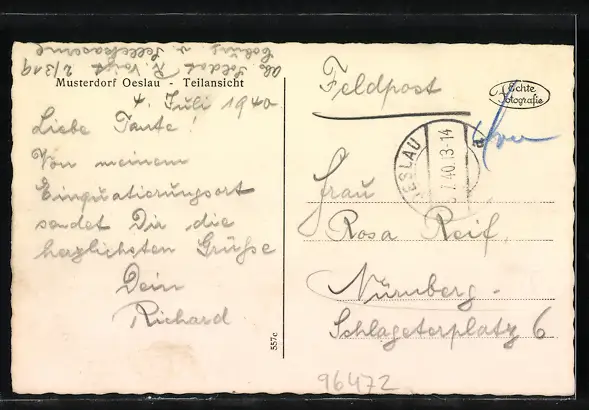 Abs. Soldat R. Voigt 2/319
Coburg v.
Musterdorf Oeslau - Teilansicht
4. Juli 1940
Liebe Tante!
Von meinem
Einquatierungsort
sendet Dir die
herzlichsten Grüße
Dein
Richard
557c
Feldpost
Echte
Fotografie
OESLAU
7.40.13-14
a
Frau
Rosa Reif,
Nürnberg-
Schlageterplatz 6
96472